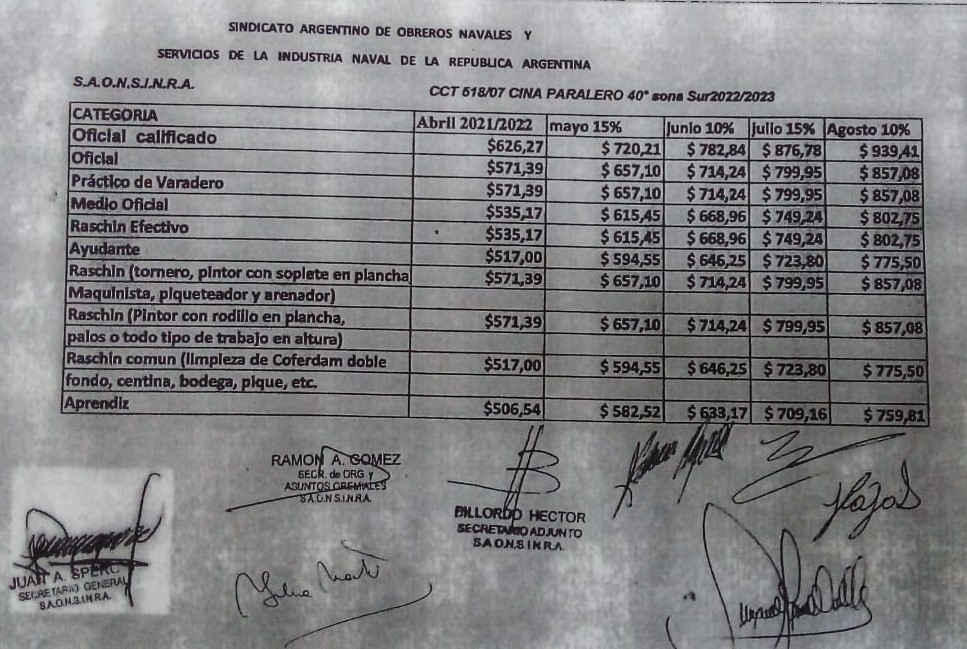 SINDICATO ARGENTINO DE OBREROS NAVALES Y
SERVICIOS DE LA INDUSTRIA NAVAL DE LA REPUBLICA ARGENTINA
S.A.O.N.S.I.N.R.A.
CCT 518/07 CINA PARALERO 40° sona Sur2022/2023
CATEGORIA Abril 2021/2022 mayo 15% junio 10% julio 15% Agosto 10%
Oficial calificado $626,27 $ 720,21 $ 782,84 $ 876,78 $ 939,41
Oficial $571,39 $ 657,10 $ 714,24 $ 799,95 $ 857,08
Práctico de Varadero $571,39 $ 657,10 $ 714,24 $ 799,95 $ 857,08
Medio Oficial $535,17 $ 615,45 $ 668,96 $ 749,24 $ 802,75
Raschin Efectivo $535,17 $ 615,45 $ 668,96 $ 749,24 $ 802,75
Ayudante $517,00 $ 594,55 $ 646,25 $ 723,80 $ 775,50
Raschin (tornero, pintor con soplete en plancha $571,39 $ 657,10 $ 714,24 $ 799,95 $ 857,08
Maquinista, piqueteador y arenador)
Raschin (Pintor con rodillo en plancha, $571,39 $ 657,10 $ 714,24 $ 799,95 $ 857,08
palos o todo tipo de trabajo en altura)
Raschin comun (limpieza de Coferdam doble $517,00 $ 594,55 $ 646,25 $ 723,80 $ 775,50
fondo, centina, bodega, pique, etc.
Aprendiz $506,54 $ 582,52 $ 633,17 $ 709,16 $ 759,81
RAMON A. GOMEZ
SECR. de ORG y
ASUNTOS GREMIALES
S.A.O.N.S.I.N.R.A.
BILLORDO HECTOR
SECRETARIO ADJUNTO
S.A.O.N.S.I.N.R.A.
JUAN A. SPERC
SECRETARIO GENERAL
S.A.O.N.S.I.N.R.A.